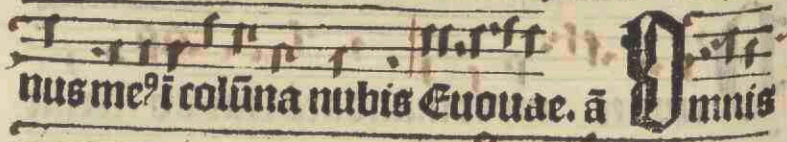 nus meꝰ ī colūna nubis Euouae. ā Omnis